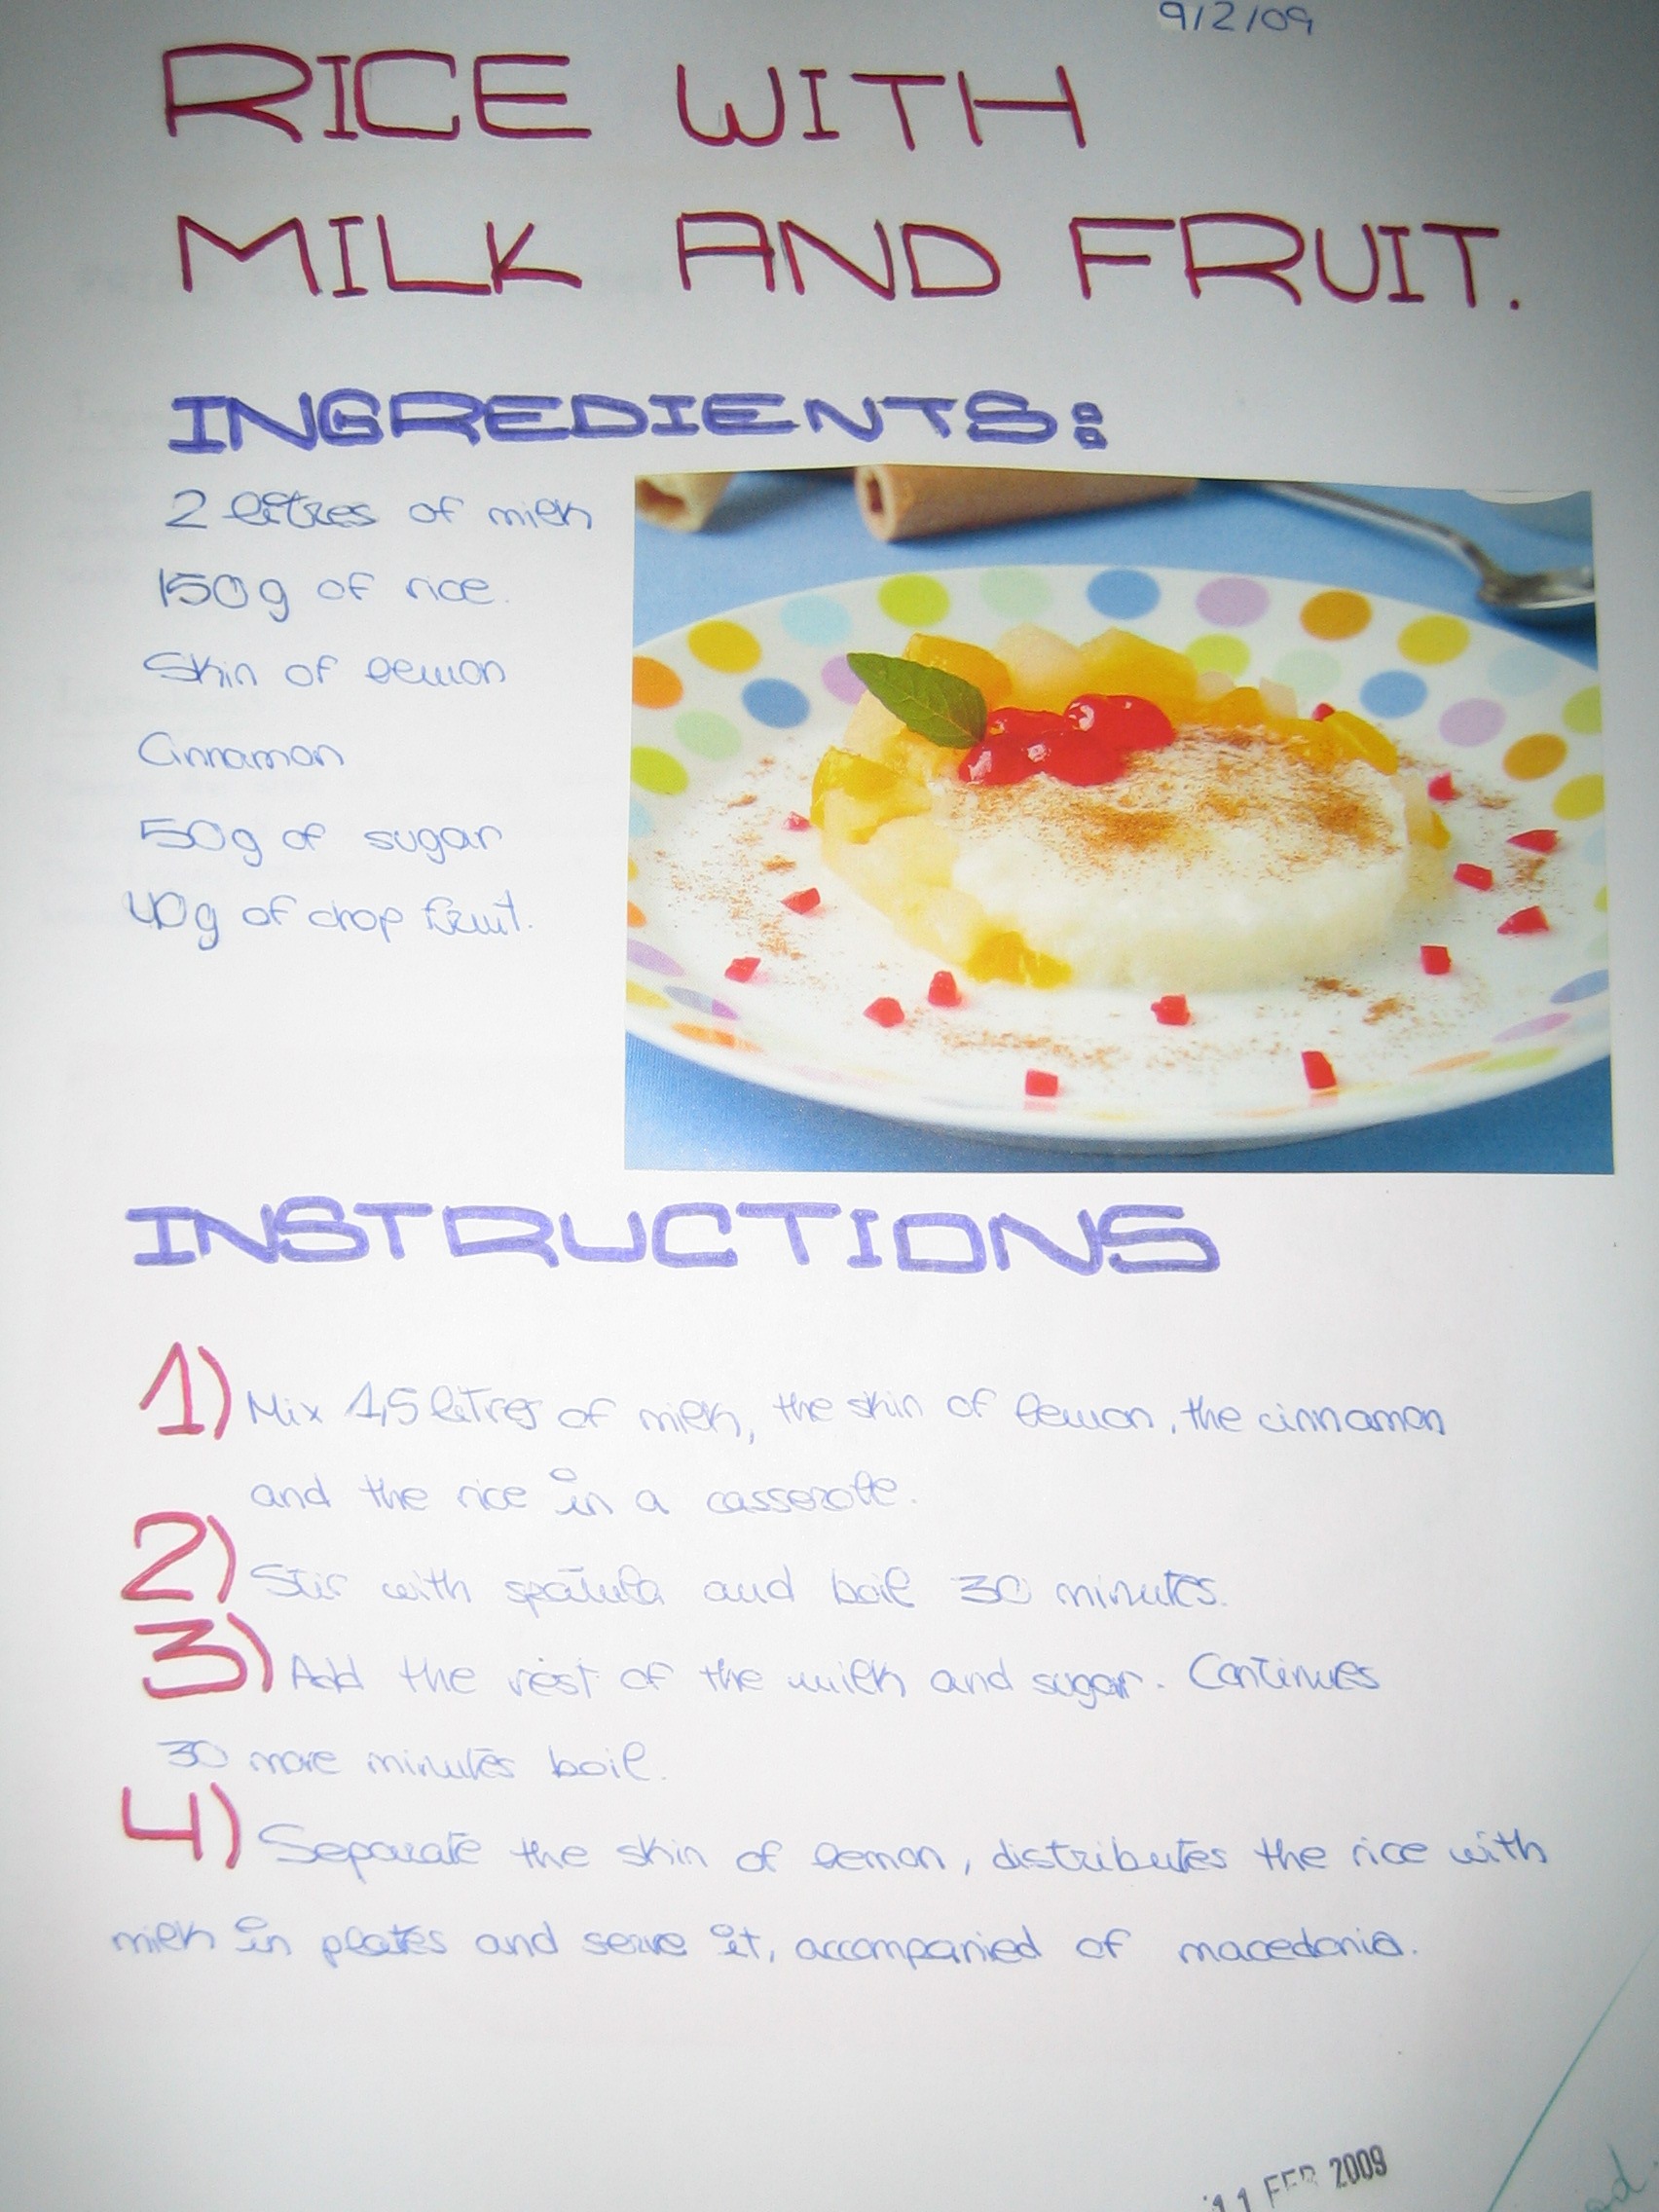 9/2/09
RICE WITH
MILK AND FRUIT.
INGREDIENTS:
2 litres of milk
150g of rice.
Skin of lemon
Cinnamon
50g of sugar
40g of chop fruit.
INSTRUCTIONS
1) Mix 1,5 litres of milk, the skin of lemon, the cinnamon
and the rice in a casserole.
2) Stir with spatula and boil 30 minutes.
3) Add the rest of the milk and sugar. Continues
30 more minutes boil.
4) Separate the skin of lemon, distributes the rice with
milk in plates and serve it, accompanied of macedonia.
11 FEB 2009